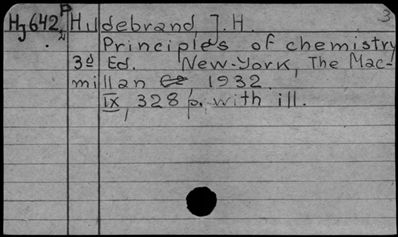 Hj 642 P Hildebrand, J.H. 3
Principles of chemistry
3d Ed. New-York, The Mac-
millan Co, 1932.
IX, 328 p. with ill.